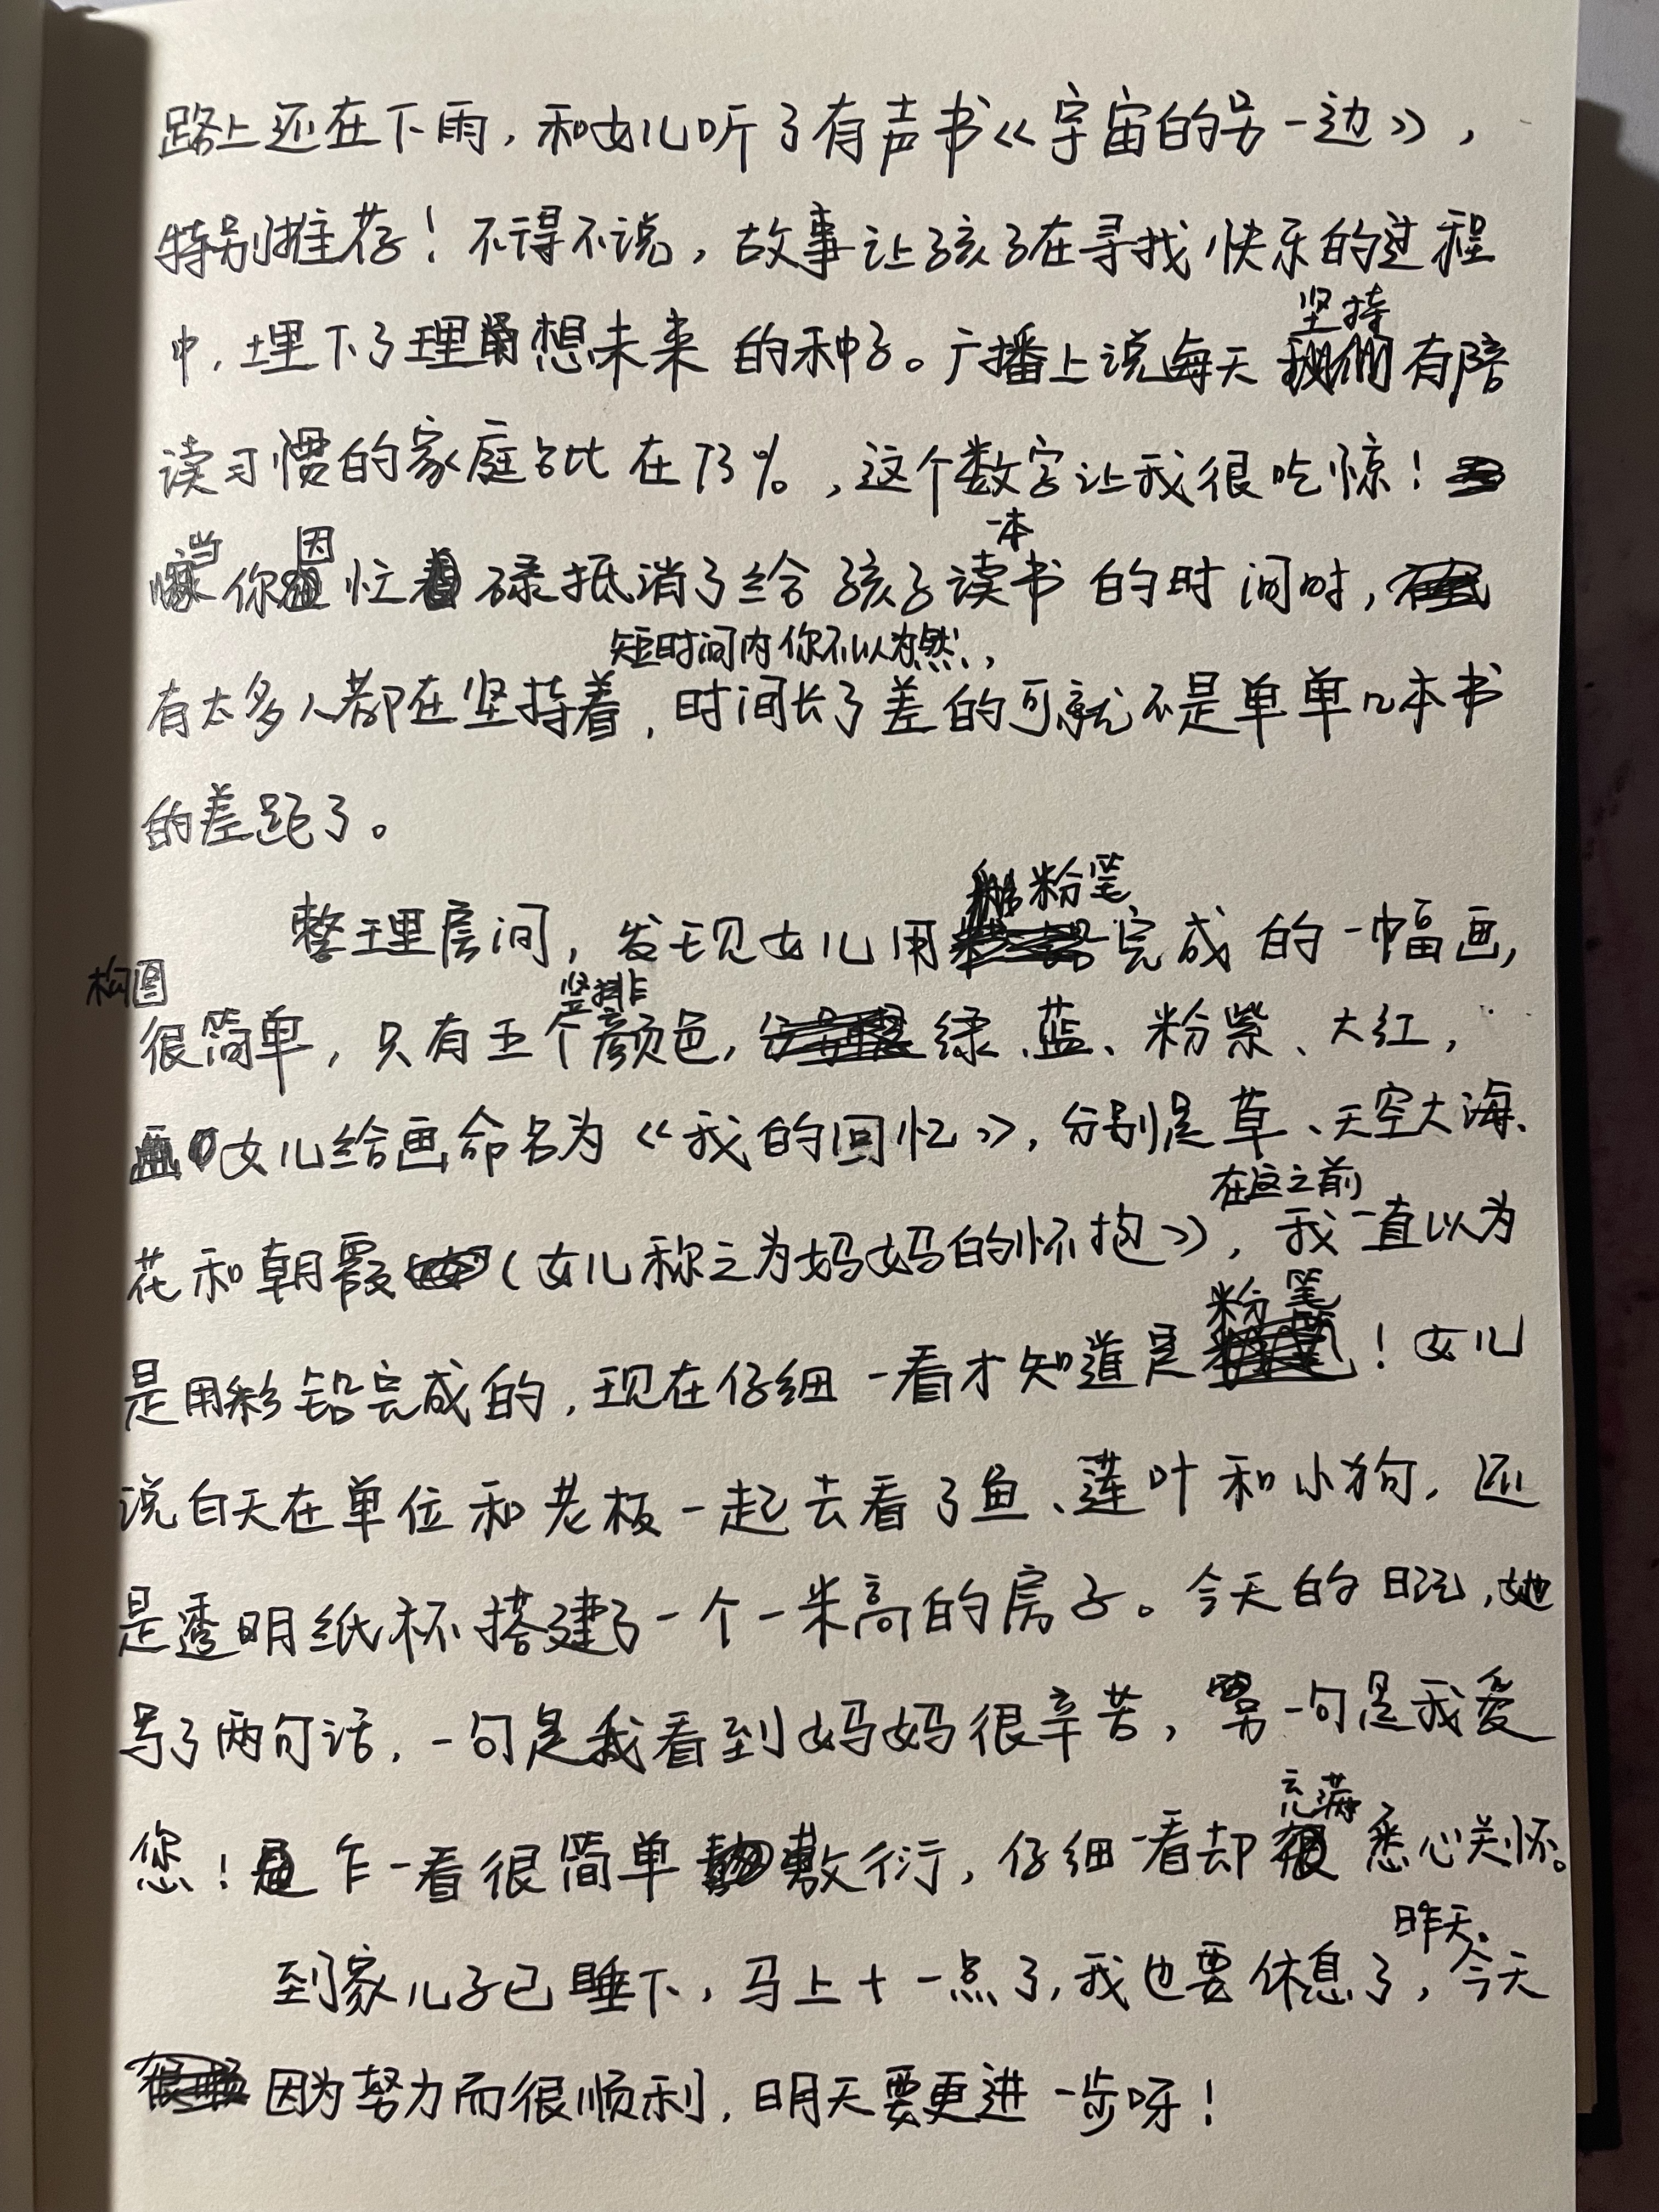 路上还在下雨，和女儿听了有声书《宇宙的另一边》，
特别推荐！不得不说，故事让孩子在寻找快乐的过程
坚持
中，埋下了理想未来的种子。广播上说每天有陪
读习惯的家庭占比在73%，这个数字让我很吃惊！
当 因 一本
你忙碌抵消了给孩子读书的时间时，
短时间内你不以为然，
有太多人都在坚持着，时间长了差的可就不是单单几本书
的差距了。
粉笔
整理房间，发现女儿用完成的一幅画，
构图 竖排
很简单，只有五个颜色，绿、蓝、粉紫、大红，
女儿给画命名为《我的回忆》，分别是草、天空大海、
在这之前
花和朝霞（女儿称之为妈妈的怀抱》），我一直以为
粉笔
是用彩铅完成的，现在仔细一看才知道是！女儿
说白天在单位和老板一起去看了鱼、莲叶和小狗，还
是透明纸杯搭建了一个一米高的房子。今天的日记，她
写了两句话，一句是我看到妈妈很辛苦，另一句是我爱
充满
您！乍一看很简单敷衍，仔细一看却悉心关怀。
昨天、
到家儿子已睡下，马上十一点了，我也要休息了，今天
因为努力而很顺利，明天要更进一步呀！